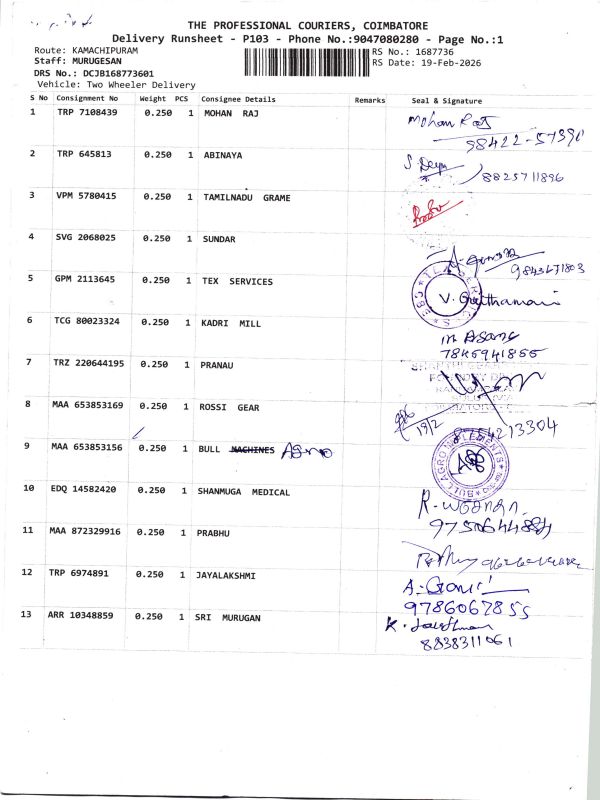 THE PROFESSIONAL COURIERS, COIMBATORE
Delivery Runsheet - P103 - Phone No.:9047080280 - Page No.:1
Route: KAMACHIPURAM RS No.: 1687736
Staff: MURUGESAN RS Date: 19-Feb-2026
DRS No.: DCJB168773601
Vehicle: Two Wheeler Delivery
S No Consignment No Weight PCS Consignee Details Remarks Seal & Signature
1 TRP 7108439 0.250 1 MOHAN RAJ Mohan Raj
98422-57390
2 TRP 645813 0.250 1 ABINAYA
8825711896
3 VPM 5780415 0.250 1 TAMILNADU GRAME
4 SVG 2068025 0.250 1 SUNDAR
5 GPM 2113645 0.250 1 TEX SERVICES
6 TCG 80023324 0.250 1 KADRI MILL
7845941855
7 TRZ 220644195 0.250 1 PRANAU
8 MAA 653853169 0.250 1 ROSSI GEAR
19/2
9 MAA 653853156 0.250 1 BULL MACHINES Agro
BULL AGRO IMPLEMENTS
10 EDQ 14582420 0.250 1 SHANMUGA MEDICAL
11 MAA 872329916 0.250 1 PRABHU
12 TRP 6974891 0.250 1 JAYALAKSHMI
9786067855
13 ARR 10348859 0.250 1 SRI MURUGAN
8838311061